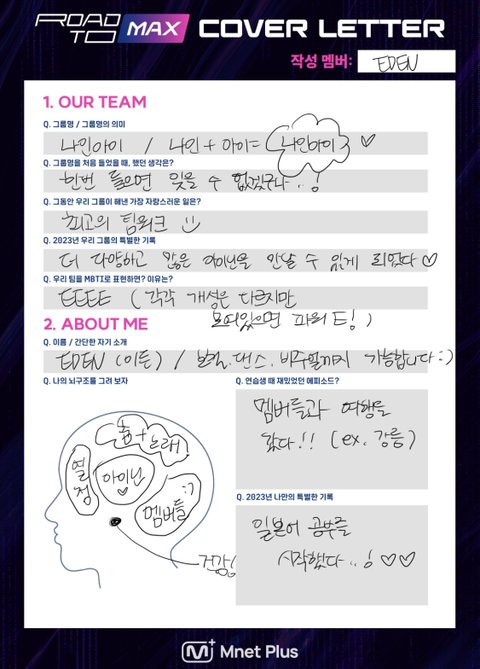 ROAD TO MAX COVER LETTER
작성 멤버: EDEN
1. OUR TEAM
Q. 그룹명 / 그룹명의 의미
나인아이 / 나인 + 아이 = 나인아이 ♡
Q. 그룹명을 처음 들었을 때, 했던 생각은?
한번 들으면 잊을 수 없겠구나..!
Q. 그동안 우리 그룹이 해낸 가장 자랑스러운 일은?
최고의 팀워크
Q. 2023년 우리 그룹의 특별한 기록
더 다양하고 많은 아이닌을 만날 수 있게 되었다 ♡
Q. 우리 팀을 MBTI로 표현하면? 이유는?
EEEE (각각 개성은 다르지만
모여있으면 파워 E!)
2. ABOUT ME
Q. 이름 / 간단한 자기 소개
EDEN (이든) / 보컬, 댄스, 비주얼까지 가능합니다 :)
Q. 나의 뇌구조를 그려 보자
춤+노래
열정
아이닌 ♡
멤버들 :)
건강!
Q. 연습생 때 재밌었던 에피소드?
멤버들과 여행을
갔다!! (ex. 강릉)
Q. 2023년 나만의 특별한 기록
일본어 공부를
시작했다..! ♡♡
M Mnet Plus